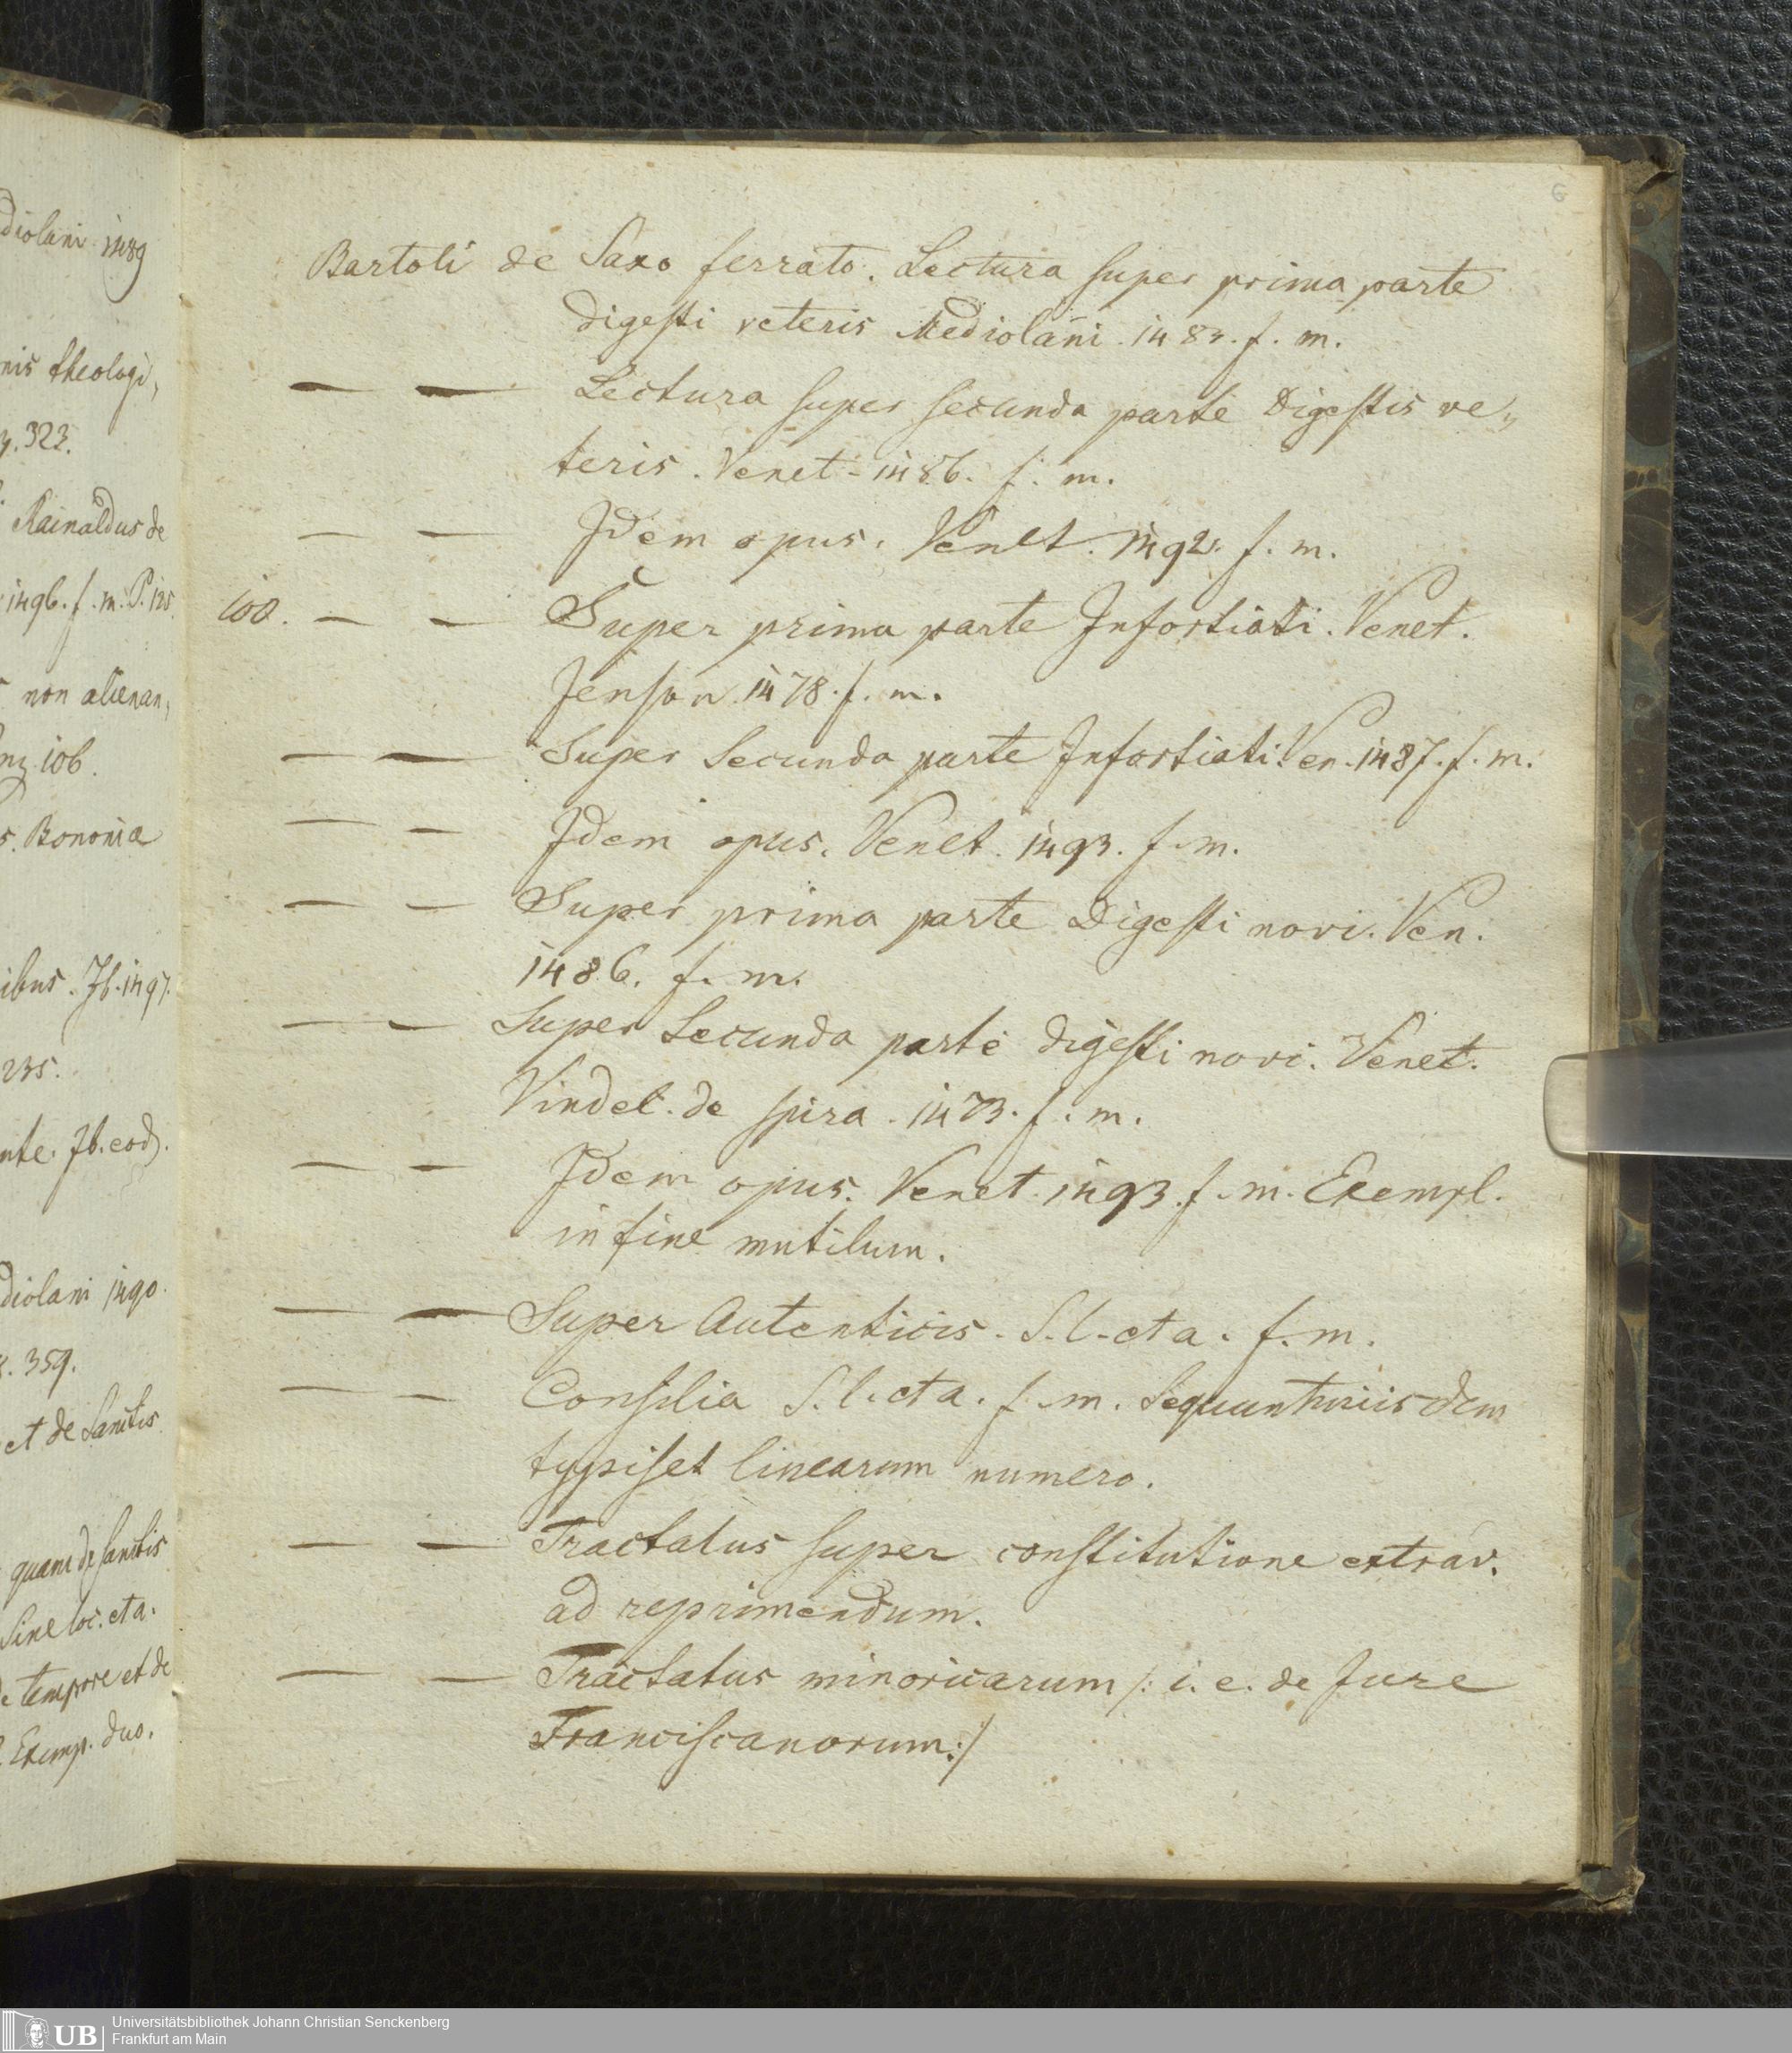 diolani 1489
nis theologi,
p. 323.
Rainaldus de
1496. f. m. P. 125.
non alienan,
106.
s. Bononiæ
ibus. Ib. 1497.
235.
nte. Ib. eod.
diolani 1490.
. 359.
et de Sanctis
quam de sanctis
Sine loc. et a.
de tempore et de
Exemp. duo.
6
Bartoli de Saxo ferrato. Lectura super prima parte
digesti veteris Mediolani. 1483. f. m.
— — Lectura super secunda parte Digestis ve,,
teris. Venet. 1486. f. m.
— — Idem opus. Venet. 1492. f. m.
100. — — Super prima parte Infortiati. Venet.
Jenson 1478. f. m.
— — Super Secunda parte Infortiati. Ven. 1487. f. m.
— — Idem opus. Venet. 1493. f. m.
— — Super prima parte Digesti novi. Ven.
1486. f. m.
— — Super Secunda parte digesti novi. Venet.
Vindel. de spira. 1473. f. m.
— — Idem opus. Venet. 1493. f. m. Exempl.
in fine mutilum.
— — Super Autenticis. S. l. et a. f. m.
— — Consilia S. l. et a. f. m. Sequuntur iisdem
typis et linearum numero.
— — Tractatus super constitutione extrav.
ad reprimendum.
— — Tractatus minoricarum /: i. e. de Jure
Franciscanorum :/
UB
Universitätsbibliothek Johann Christian Senckenberg
Frankfurt am Main